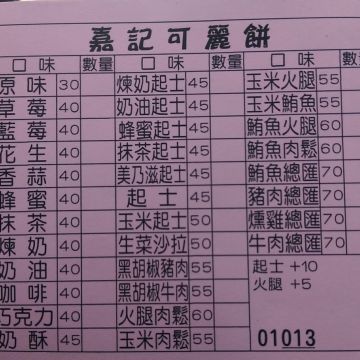 嘉記可麗餅
口味 數量 口味 數量 口味 數量
原味 30 煉奶起士 45 玉米火腿 55
草莓 40 奶油起士 45 玉米鮪魚 55
藍莓 40 蜂蜜起士 45 鮪魚火腿 60
花生 40 抹茶起士 45 鮪魚肉鬆 60
香蒜 40 美乃滋起士 45 鮪魚總匯 70
蜂蜜 40 起士 45 豬肉總匯 70
抹茶 40 玉米起士 50 燻雞總匯 70
煉奶 40 生菜沙拉 50 牛肉總匯 70
奶油 40 黑胡椒豬肉 55 起士 +10
咖啡 40 黑胡椒牛肉 55 火腿 +5
巧克力 40 火腿肉鬆 55
奶酥 45 玉米肉鬆 55 01013